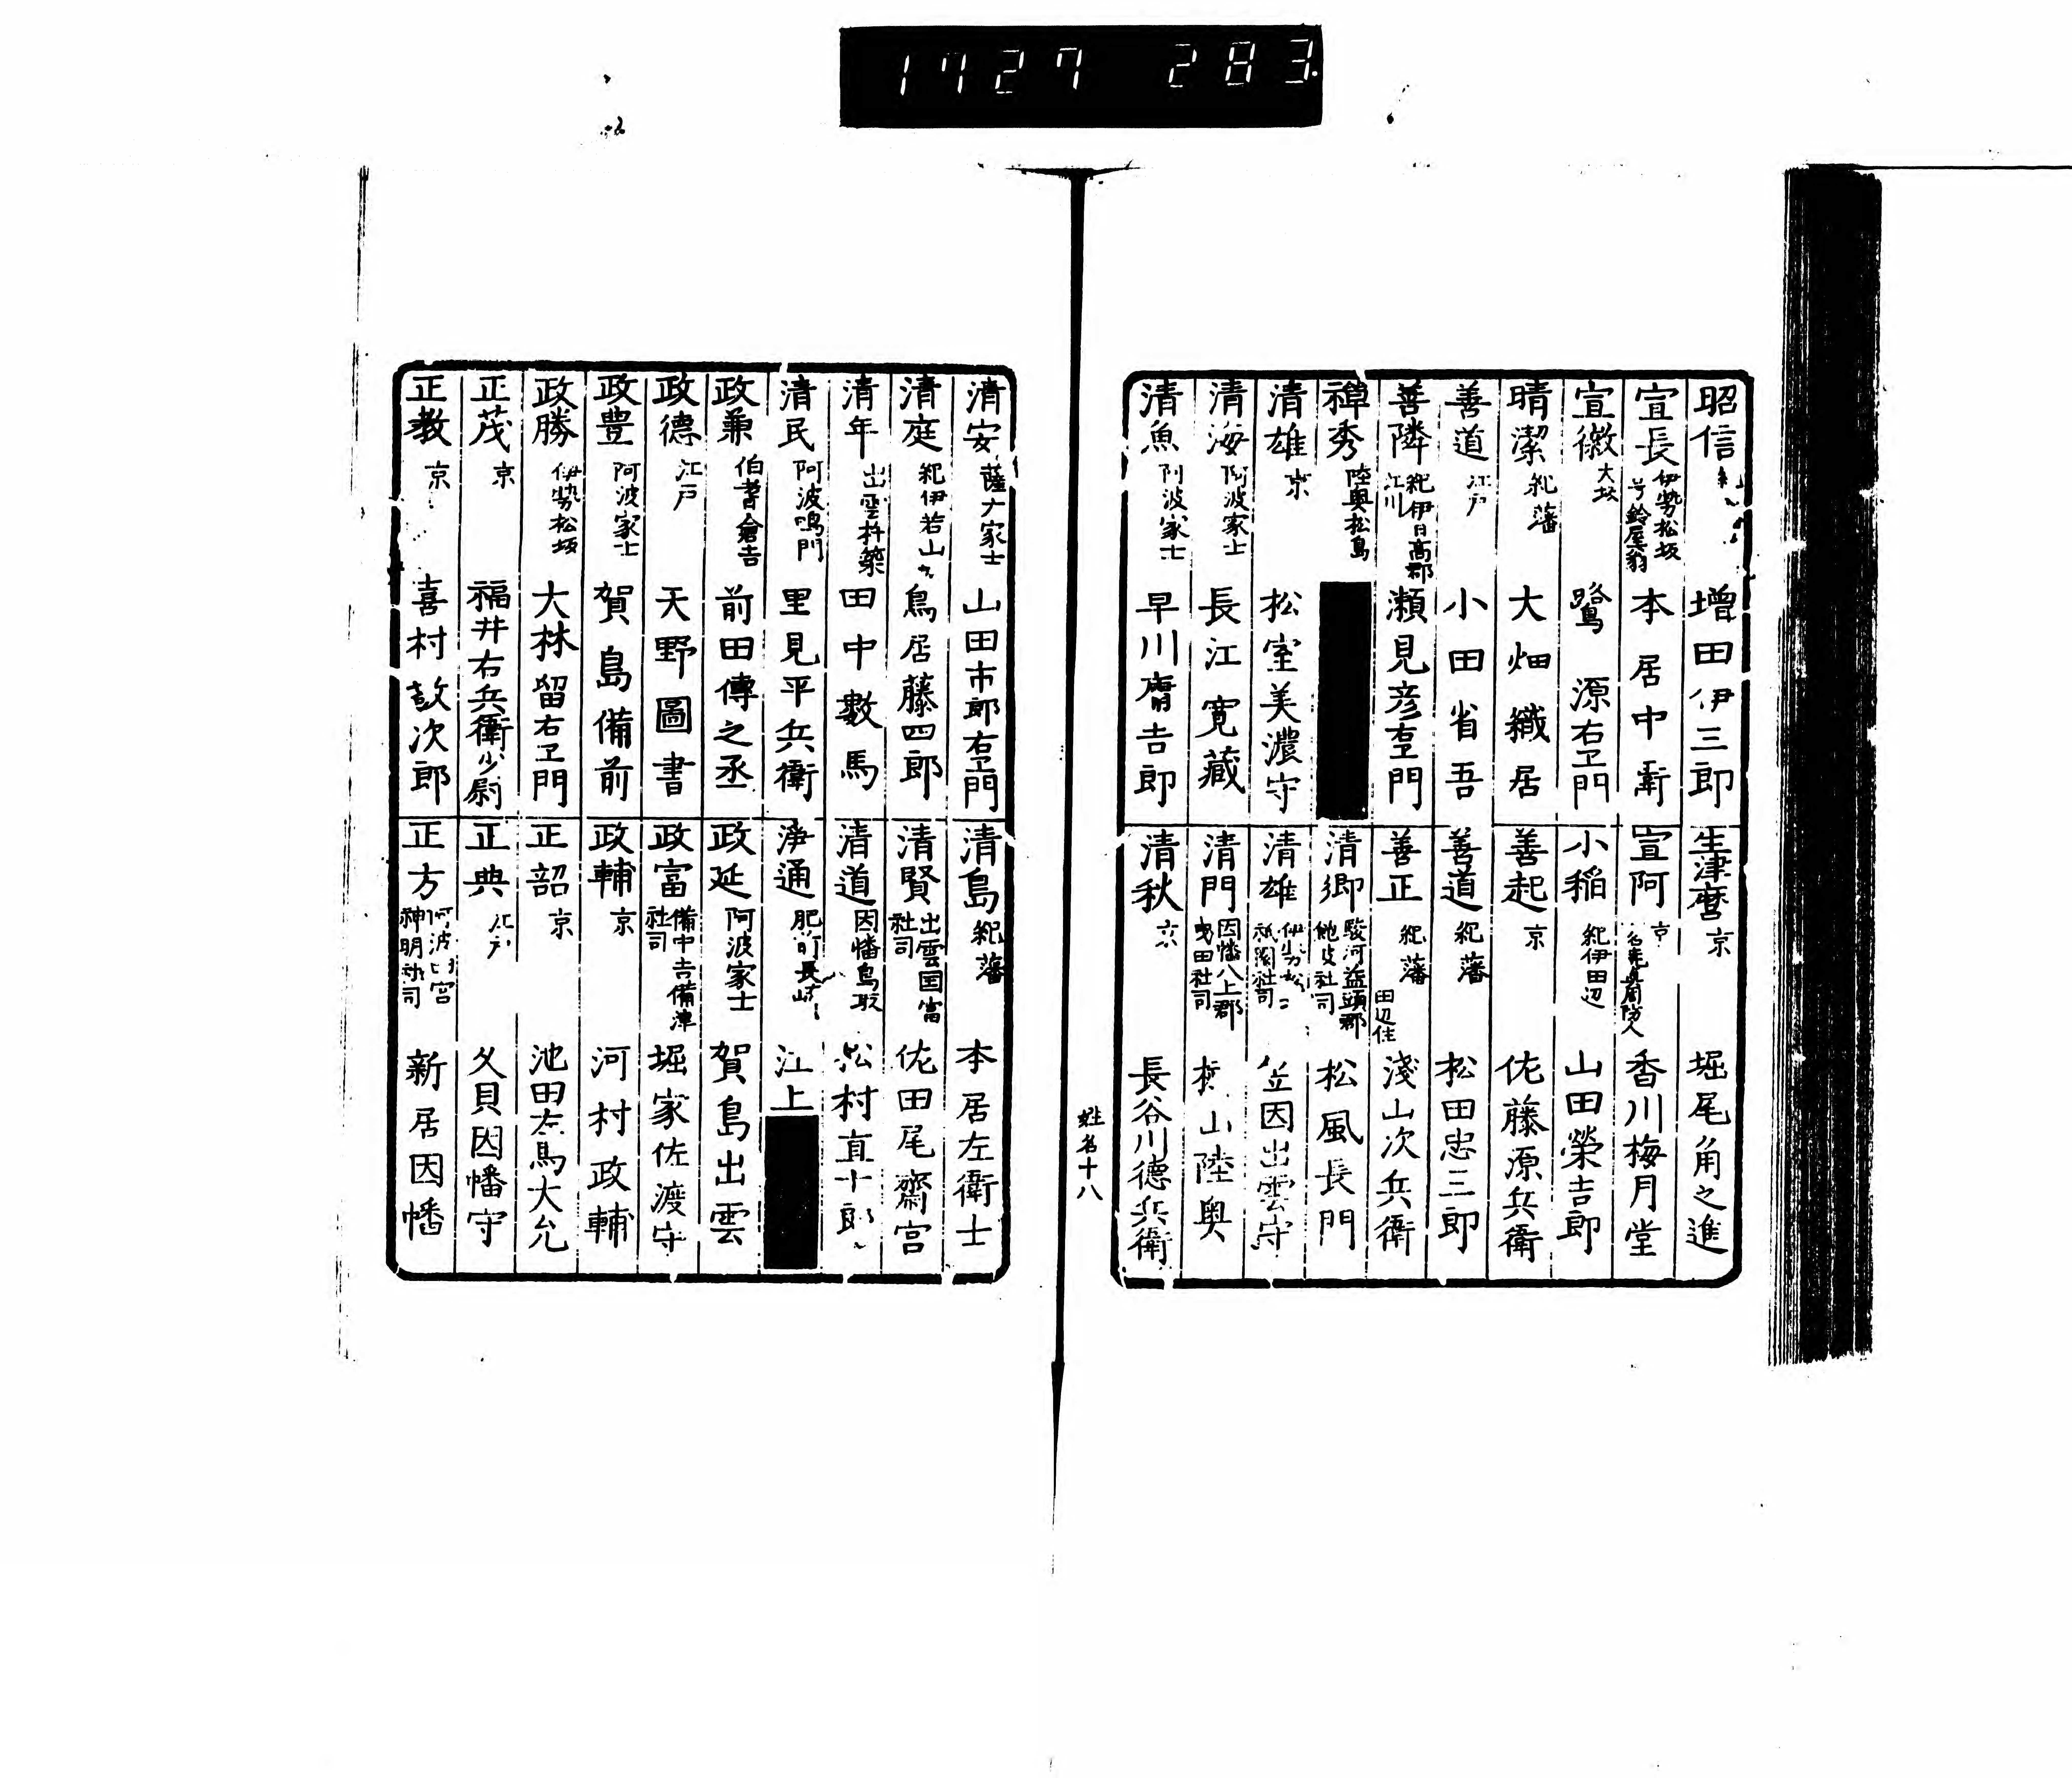 1727 283
昭信 増田伊三郎
宣長 伊勢松坂 号鈴屋翁 本居中衛
宣徽 大坂 鷺源右卫門
晴潔 紀藩 大畑織居
善道 江戸 小田省吾
善隣 紀伊日高郡 江川 瀬見彦右卫門
禅秀 陸奥松島
清雄 京 松室美濃守
清海 阿波家士 長江寛蔵
清魚 阿波家士 早川膺吉郎
生津麿 京 堀尾角之進
宣阿 京 香川梅月堂
小稲 紀伊田辺 山田榮吉郎
善起 京 佐藤源兵衛
善道 紀藩 松田忠三郎
善正 紀藩 田辺住 淺山次兵衛
清卿 駿河益頭郡 社司 松風長門
清雄 祇園社司 出雲守
清門 因幡八上郡 曳田社司 山陸奥
清秋 京 長谷川德兵衛
姓名十八
清安 家士 山田市郎右卫門
清庭 紀伊若山 鳥居藤四郎
清年 出雲杵築 田中數馬
清民 阿波鳴門 里見平兵衛
政兼 伯耆倉吉 前田傳之丞
政德 江戸 天野圖書
政豊 阿波家士 賀島備前
政勝 伊勢松坂 大林留右卫門
正茂 京 福井右兵衛少尉
正教 京 喜村敼次郎
清島 紀藩 本居左衛士
清賢 出雲国富 社司 佐田尾齋宮
清道 因幡鳥取 松村直十郎
浄通 肥前長崎 江上
政延 阿波家士 賀島出雲
政富 備中吉備津 社司 堀家佐渡守
政輔 京 河村政輔
正韶 京 池田右馬大允
正典 江戸 久貝因幡守
正方 阿波 宮 神明社司 新居因幡